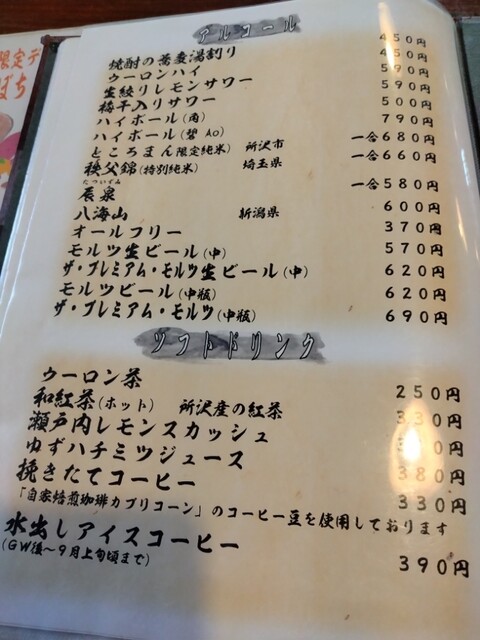 限定デ
ばち
アルコール
焼酎の蕎麦湯割り 450円
ウーロンハイ 450円
生絞りレモンサワー 590円
梅干入りサワー 590円
ハイボール(角) 500円
ハイボール(碧 Ao) 790円
ところまん(限定純米) 所沢市 一合680円
秩父錦(特別純米) 埼玉県 一合660円
たついずみ
辰泉 一合580円
八海山 新潟県 600円
オールフリー 370円
モルツ生ビール(中) 570円
ザ・プレミアム・モルツ生ビール(中) 620円
モルツビール(中瓶) 620円
ザ・プレミアム・モルツ(中瓶) 690円
ソフトドリンク
ウーロン茶 250円
和紅茶(ホット) 所沢産の紅茶 330円
瀬戸内レモンスカッシュ
ゆずハチミツジュース 380円
挽きたてコーヒー 330円
「自家焙煎珈琲カプリコーン」のコーヒー豆を使用しております
水出しアイスコーヒー 390円
(GW後〜9月上旬頃まで)